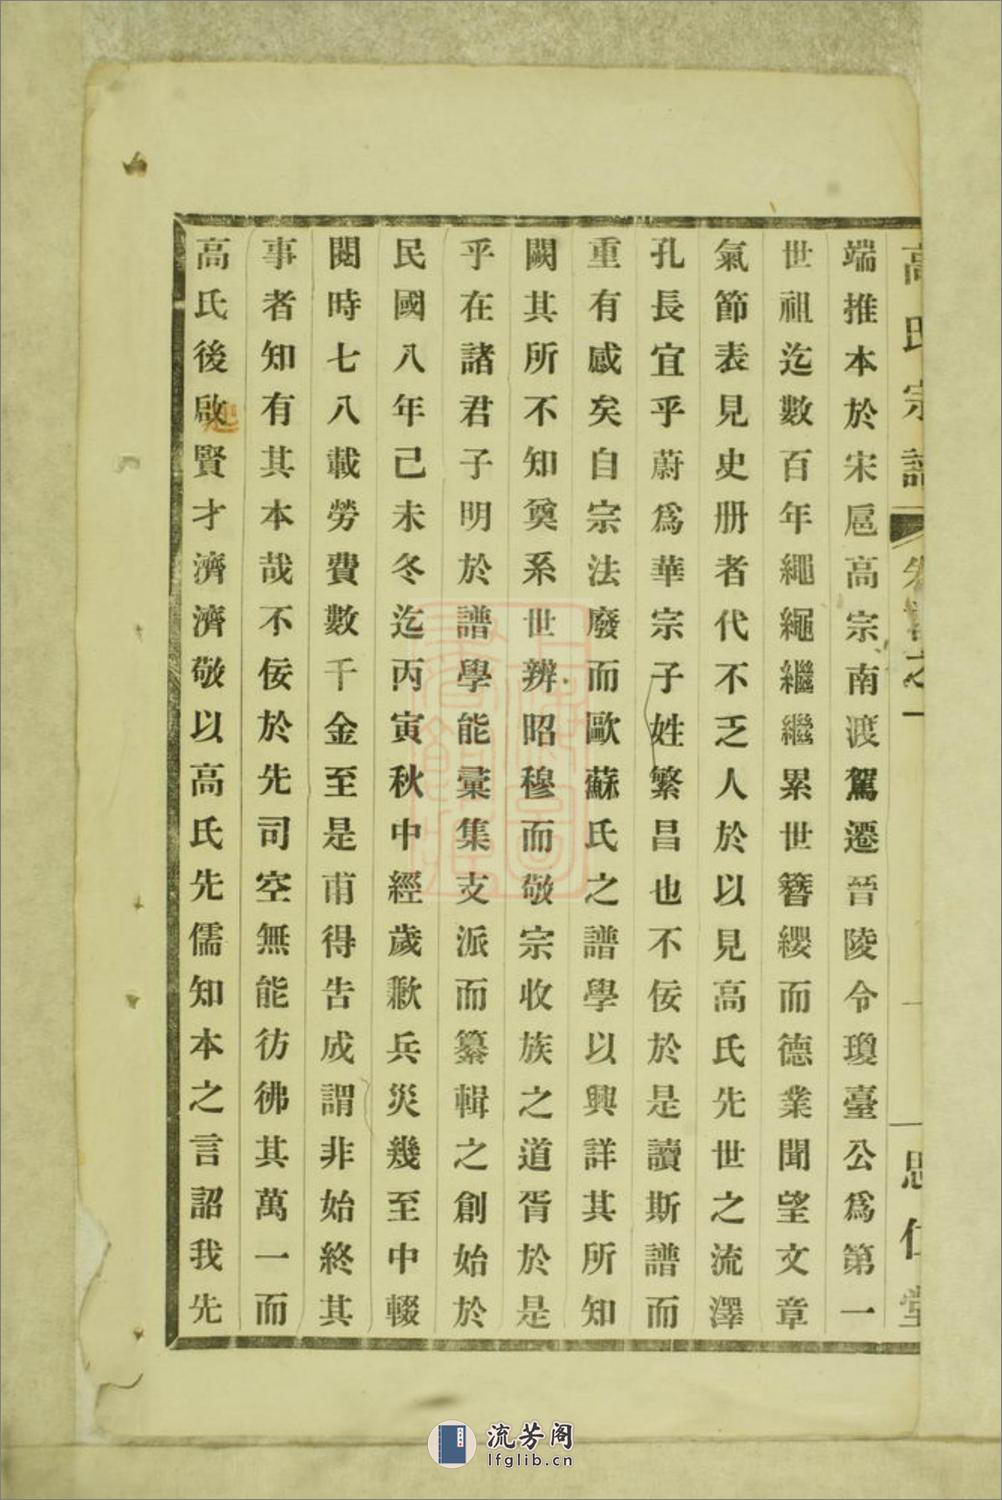 高氏宗譜 卷首之一 一 思仁堂
端推本於宋扈高宗南渡駕遷晉陵令瓊臺公爲第一
世祖迄數百年繩繩繼繼累世簪纓而德業聞望文章
氣節表見史册者代不乏人於以見高氏先世之流澤
孔長宜乎蔚爲華宗子姓繁昌也不佞於是讀斯譜而
重有感矣自宗法廢而歐蘇氏之譜學以興詳其所知
闕其所不知奠系世辨昭穆而敬宗收族之道胥於是
乎在諸君子明於譜學能彙集支派而纂輯之創始於
民國八年己未冬迄丙寅秋中經歲歉兵災幾至中輟
閱時七八載勞費數千金至是甫得告成謂非始終其
事者知有其本哉不佞於先司空無能彷彿其萬一而
高氏後啟賢才濟濟敬以高氏先儒知本之言詔我先
起
流芳阁
lfglib.cn